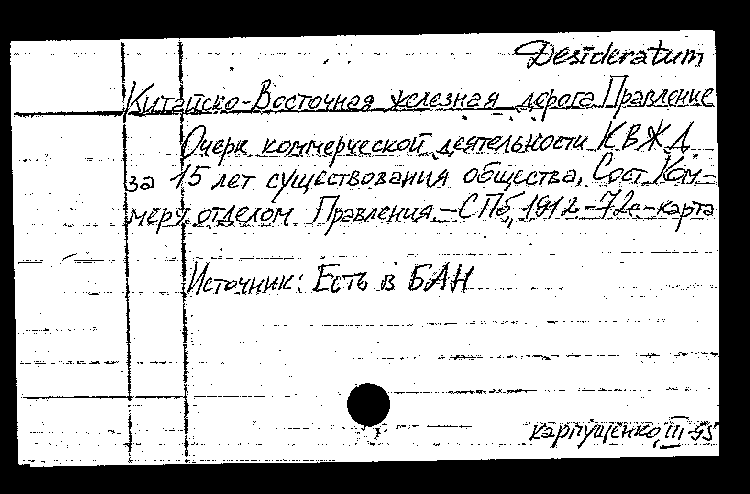 Desideratum
Китайско-Восточная железная дорога Правление
Очерк коммерческой деятельности КВЖД
за 15 лет существования общества. Сост. Ком-
мерч. отделом Правления. – СПб, 1912 – 72с – карта
Источник: Есть в БАН
карпущенко, III-95